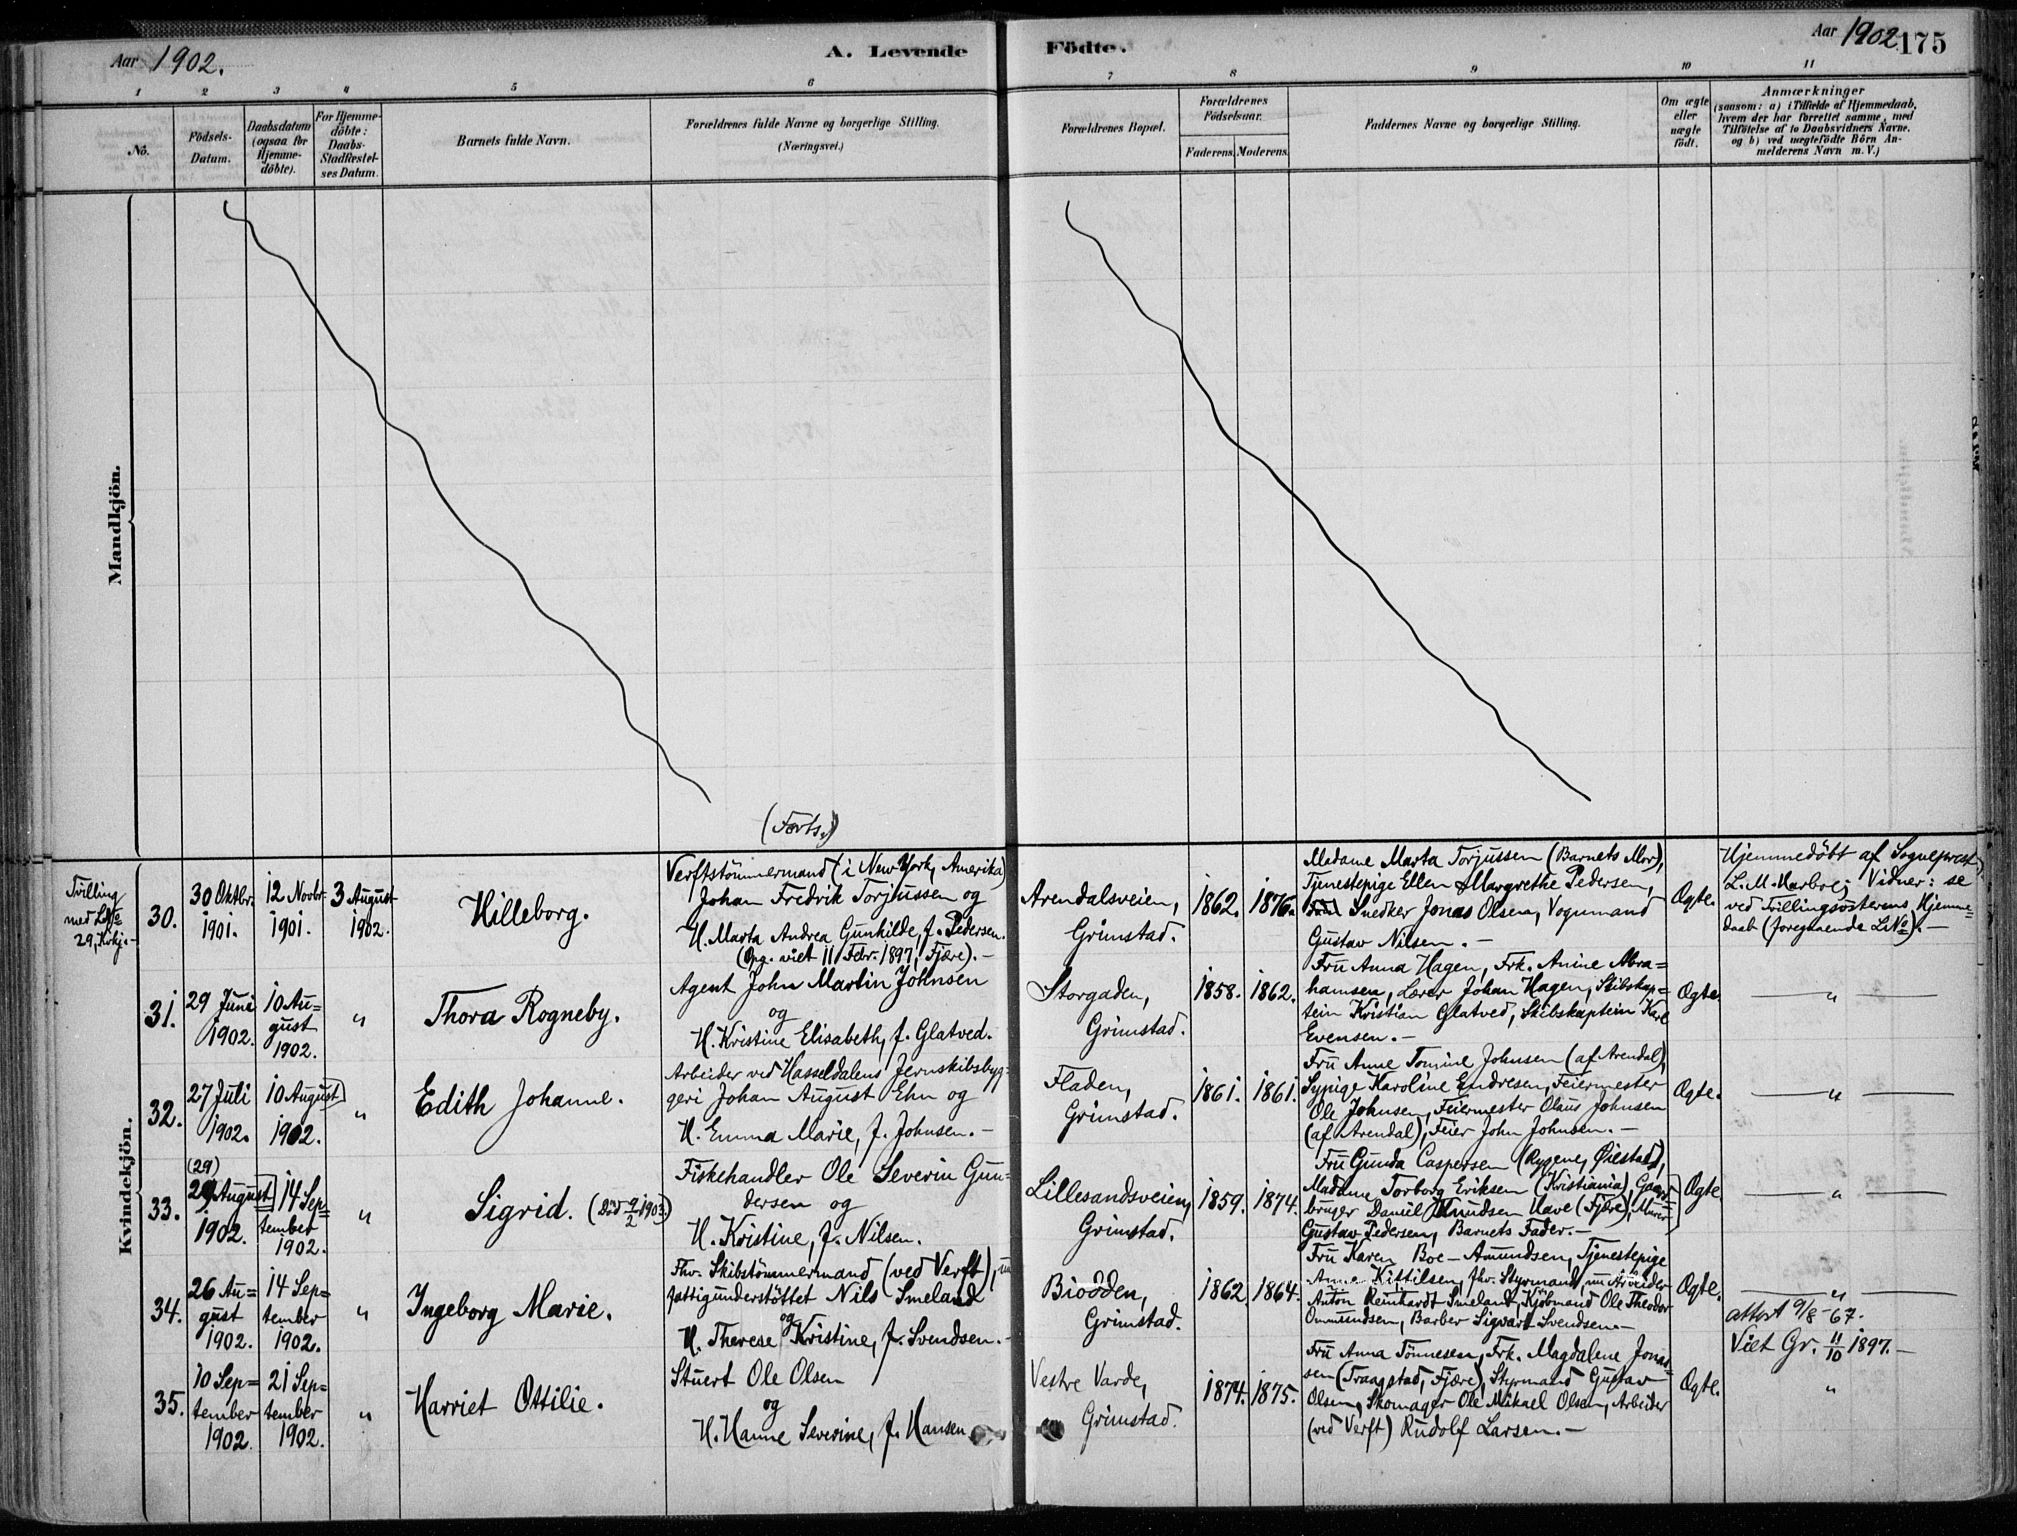 Aar 1902.
A. Levende
Födte.
Aar 1902
175
1 2 3 4 5 6
7 8 9 10 11
No.
Födsels-
Datum.
Daabsdatum
(ogsaa for
Hjemme-
döbte).
For Hjemme-
döbte:
Daabs-
Stadfestel-
ses Datum.
Barnets fulde Navn.
Forældrenes fulde Navne og borgerlige Stilling.
(Næringsvei.)
Forældrenes Bopæl.
Forældrenes
Födselsaar.
Faderens. Moderens.
Faddernes Navne og borgerlige Stilling.
Om ægte
eller
uægte
födt.
Anmærkninger
(saasom: a) i Tilfælde af Hjemmedaab,
hvem der har forrettet samme, med
Tilföielse af to Daabsvidners Navne.
og b) ved uægtefödte Börn An-
melderens Navn m. V.)
Mandkjön.
(Forts.)
Kvindekjön.
Tvilling
med
29,
30.
30 Oktbr.
1901.
12 Novbr.
1901.
3 August
1902.
Hilleborg.
Verftstömmermand (i New York, Amerika)
Johan Fredrik Torjussen og
H. Marta Andrea Gunhilde, f. Pedersen.
(Opg. viet 11 Febr. 1897, Fjære). —
Arendalsveien,
Grimstad.
1862.
1876.
Madame Marta Torjussen (Barnets Mor),
Tjenestepige Ellen Margrethe Pedersen,
Snedker Jonas Olsen, Vognmand
Gustav Nilsen. —
Ægte.
Hjemmedöbt af Sogneprest
L. M. Vidner: se
ved Tvillingsösterens Hjemme-
daab (foregaaende LNo). —
31.
29 Juni
1902.
10 Au=
gust
1902.
"
Thora Rogneby.
Agent John Martin Johnsen
og
H. Kristine Elisabeth, f. Glatved.
Storgaden,
Grimstad.
1858.
1862.
Fru Anna Hagen, Frk. Anine Abra=
hamsen, Lærer Johan Hagen, Skibskap=
tein Kristian Glatved, Skibskaptein Karl
Evensen. —
Ægte.
— " —
32.
27 Juli
1902.
10 August
1902.
"
Edith Johanne.
Arbeider ved Hasseldalens Jernskibsbyg-
geri Johan August Ehn og
H. Emma Marie, f. Johnsen. —
Fladen,
Grimstad.
1861.
1861.
Fru Anne Tomine Johnsen (af Arendal),
Sypige Karoline Endresen, Feiermester
Ole Johnsen, Feiermester Olaus Johnsen
(af Arendal), Feier John Johnsen. —
Ægte.
— " —
33.
(29)
29 August
1902.
14 Sep=
tember
1902.
"
Sigrid. (Död 9/2 1903.)
Fiskehandler Ole Severin Gun=
dersen og
H. Kristine, f. Nilsen.
Lillesandsveien,
Grimstad.
1859.
1874.
Fru Gunda Caspersen (Rygene, Öiestad),
Madame Torborg Eriksen (Kristiania), Gaard=
bruger Daniel Knudsen Have (Fjære), Murer
Gustav Pedersen, Barnets Fader. —
Ægte
— " —
34.
26 Au=
gust
1902.
14 Sep=
tember
1902.
"
Ingeborg Marie.
Fhv. Skibstömmermand (ved Verft), nu
fattigunderstöttet Nils Smeland
og
H. Therese Kristine, f. Svendsen. —
Biodden,
Grimstad.
1862.
1864.
Fru Karen Boe-Amundsen, Tjenestepige
Anne Kittilsen, fhv. Styrmand, nu Arbeider
Anton Reinhardt Smeland, Kjöbmand Ole Theodor
Ommundsen, Barber Sigvart Svendsen. —
Ægte.
— " —
attest 9/8 -67.
Viet Gr. 11/10 1897. —
35.
10 Sep=
tember
1902.
21 Sep=
tember
1902.
"
Harriet Ottilie.
Stuert Ole Olsen
og
H. Hanne Severine, f. Hansen.
Vestre Varde,
Grimstad.
1874.
1875.
Fru Anna Tönnesen, Frk. Magdalene Jonas=
sen (Traagstad, Fjære), Styrmand Gustav
Olsen, Skomager Ole Mikael Olsen, Arbeider
(ved Verft) Rudolf Larsen. —
Ægte.
"